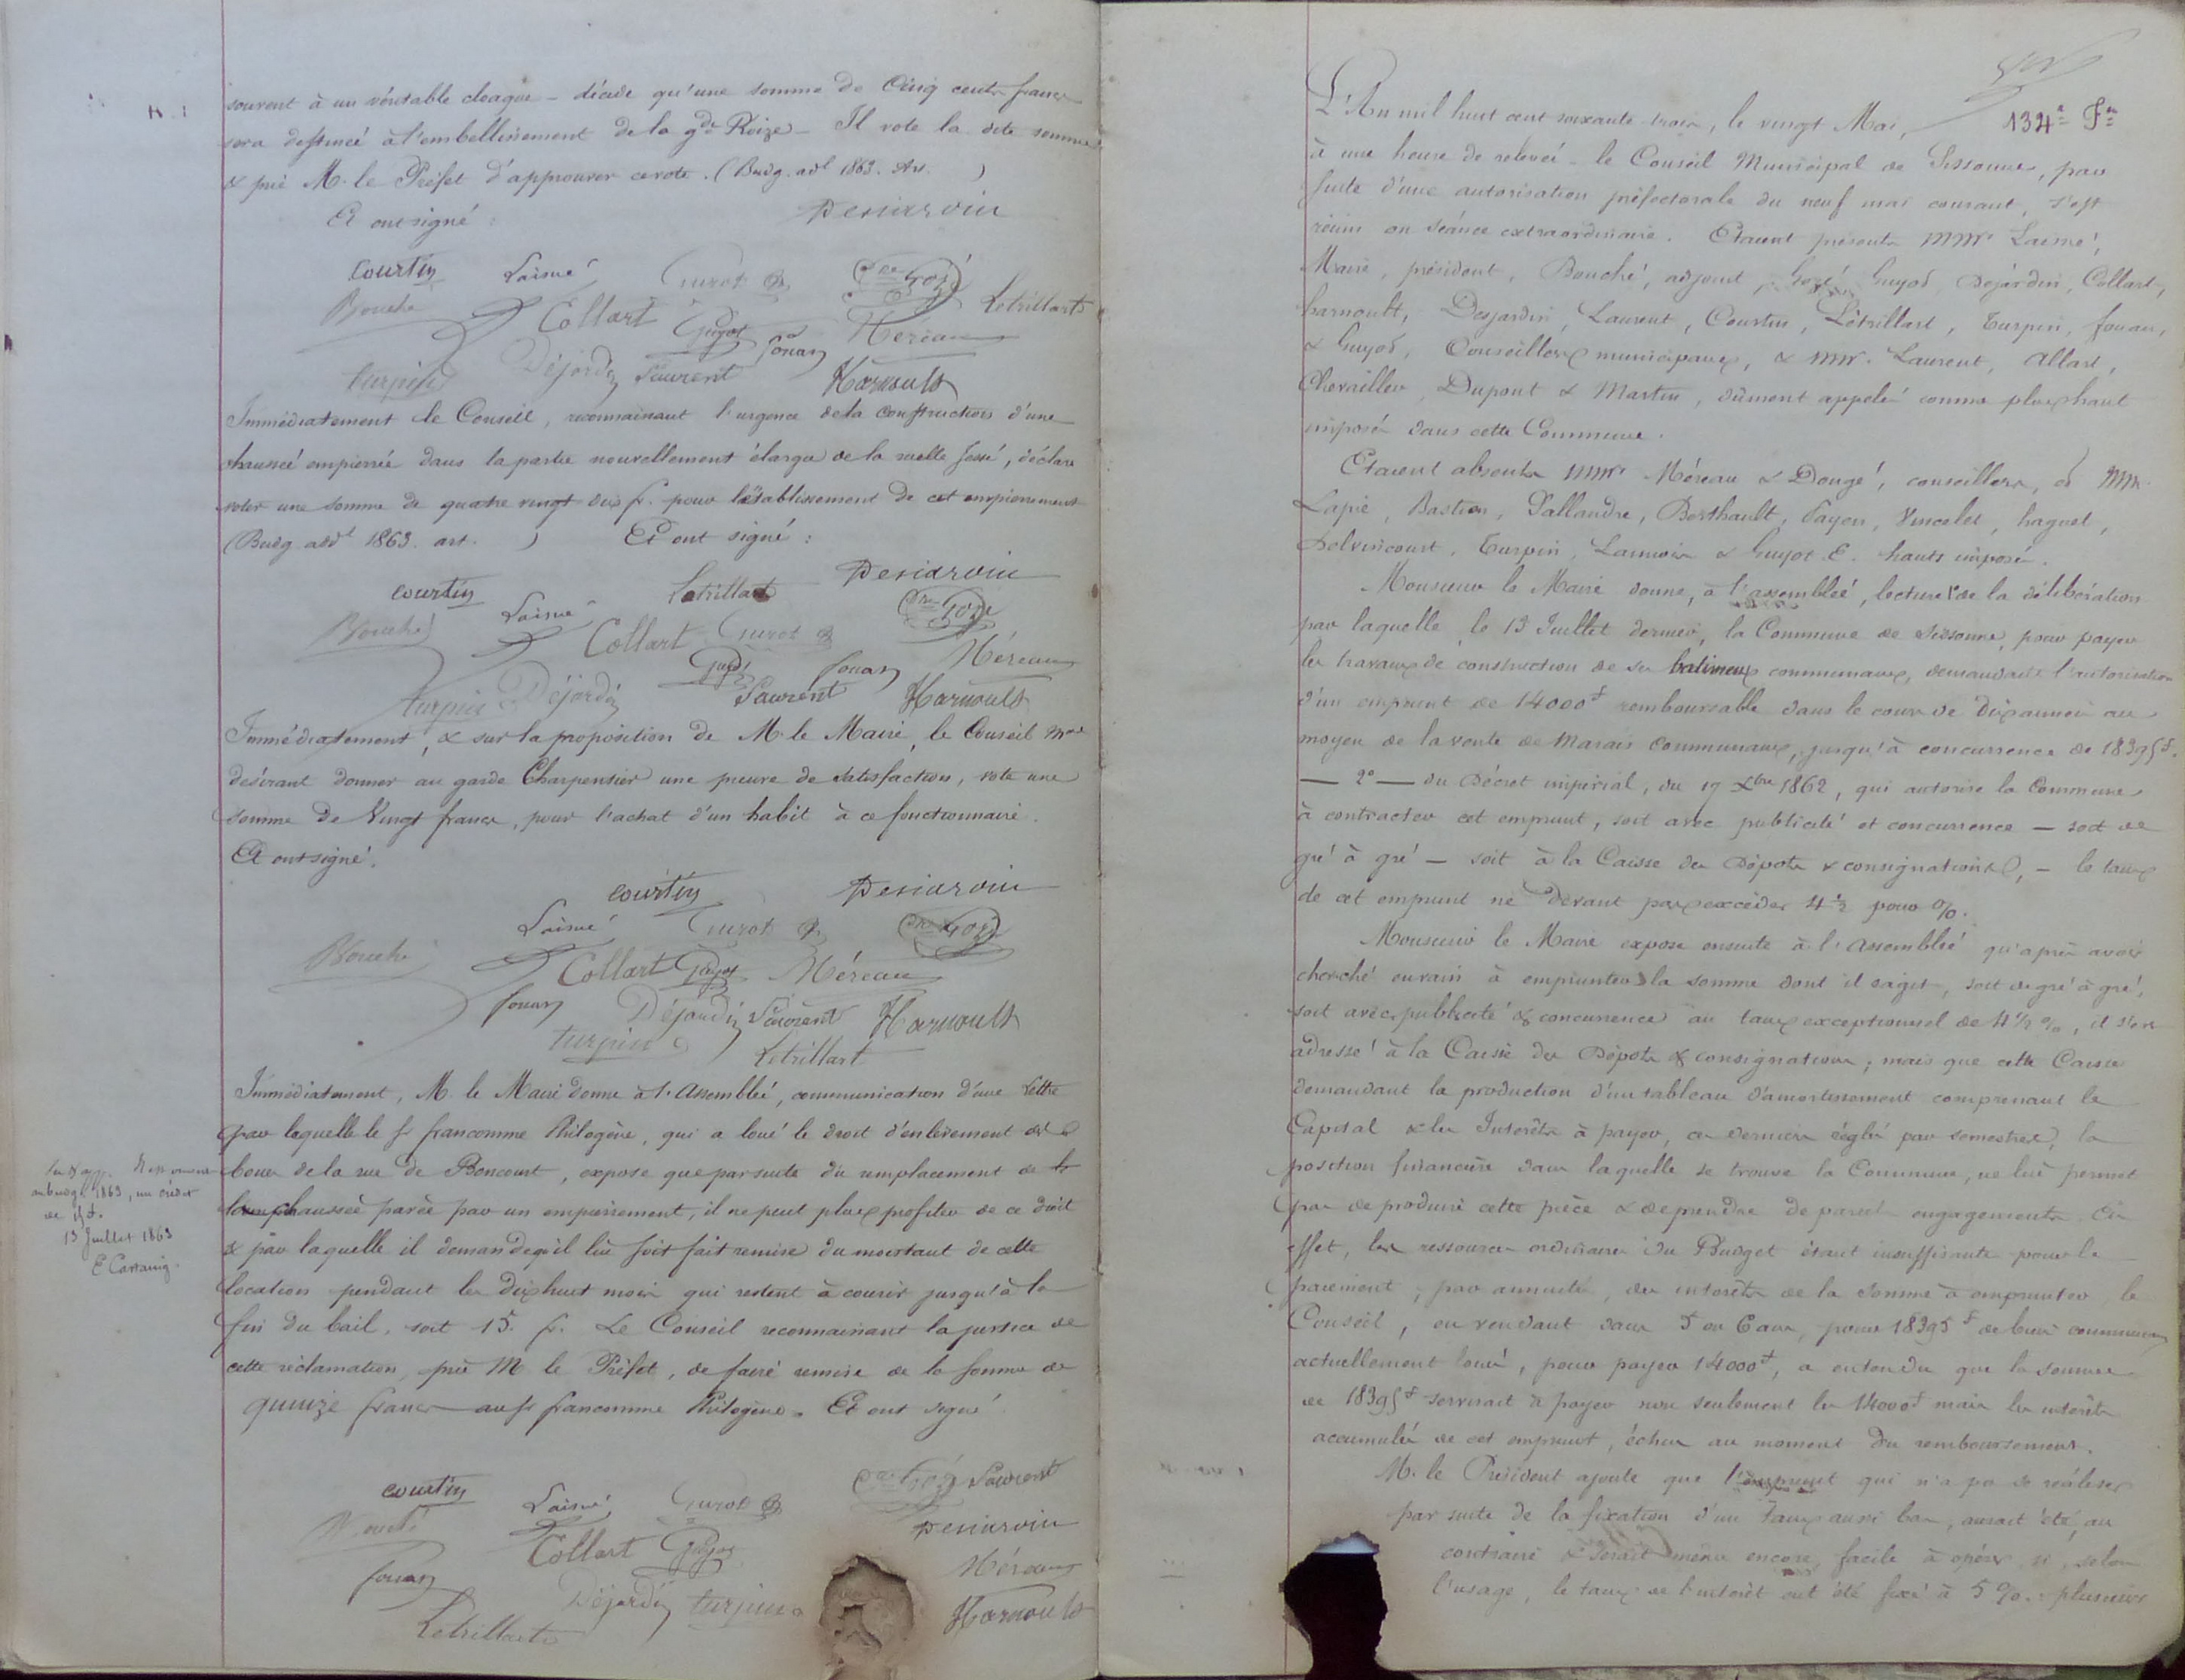 souvent à un véritable cloaque - décide qu'une somme de Cinq cents francs
sera destinée à l'embellissement de la gde Roize - Il vote la dite somme
& prie M. le Préfet d'approuver ce vote. (Budg. adl 1863. Art. )
Et ont signé :
Desjardin
Courtin Lainé Guyot E. Gozé
Bouché Collart Guyot Fouan Méreau Letrillart
Turpin Déjardin Laurent Harnoult
Immédiatement le Conseil, reconnaissant l'urgence de la construction d'une
chaussée empierrée dans la partie nouvellement élargie de la ruelle Jessé, déclare
voter une somme de quatre vingt dix f. pour l'établissement de cet empierrement
(Budg. addl 1863. art. ) Et ont signé :
Courtin Letrillart Desjardin
Bouché Lainé Collart Guyot E. Gozé
Guyot Fouan Méreau
Turpin Déjardin Laurent Harnoult
Immédiatement, & sur la proposition de M. le Maire, le Conseil Mal
désirant donner au garde Charpentier une preuve de satisfaction, vote une
somme de Vingt francs, pour l'achat d'un habit à ce fonctionnaire.
Et ont signé.
Courtin Desjardin
Lainé Guyot E. Gozé
Bouché Collart Guyot Méreau
Fouan Déjardin Laurent Harnoult
Turpin Letrillart
Immédiatement, M. le Maire donne à l'Assemblée, communication d'une Lettre
par laquelle le Sr Francomme Philogène, qui a loué le droit d'enlèvement des
boues de la rue de Boncourt, expose que par suite du remplacement de
la chaussée pavée par un empierrement, il ne peut plus profiter de ce droit
& par laquelle il demande qu'il lui soit fait remise du montant de cette
location pendant les dix huit mois qui restent à courir jusqu'à la
fin du bail, soit 15. f. Le Conseil reconnaissant la justice de
cette réclamation, prie M le Préfet, de faire remise de la somme de
quinze francs au Sr Francomme Philogène. Et ont signé
au budget 1863, un crédit
de 15f.
13 Juillet 1863
Courtin Lainé Guyot E. Gozé Laurent
Bouché Collart Guyot Desjardin
Fouan Déjardin Turpin Méreau
Letrillart Harnoult
134e Ft
L'An mil huit cent soixante trois, le vingt Mai,
à une heure de relevée - le Conseil Municipal de Sissonne, par
suite d'une autorisation préfectorale du neuf mai courant, s'est
réuni en séance extraordinaire. Etaient présents MMrs Lainé,
Maire, président, Bouché, adjoint, Gozé, Guyot, Dejardin, Collart,
harnoult, Desjardin, Laurent, Courtin, Létrillart, Turpin, fouan,
& Guyot, Conseillers municipaux, & MMr. Laurent, Allart,
Chevallier, Dupont & Martin, dûment appelés comme plus haut
imposés dans cette Commune.
Etaient absents MMrs Méreau & Dougé, conseillers, et MM.
Lapie, Bastien, Vallandre, Berthault, Payen, Vincelet, haguet,
Delvincourt, Turpin, & Guyot E. hauts imposés.
Monsieur le Maire donne, à l'assemblée, lecture 1° de la délibération
par laquelle, le 13 Juillet dernier, la Commune de Sissonne, pour payer
les travaux de construction de ses batimens communaux, demandait l'autorisation
d'un emprunt de 14000f remboursable dans le cours de dix années au
moyen de la vente de Marais Communaux, jusqu'à concurrence de 18395f.
— 2° — du Décret impérial, du 17 Xbre 1862, qui autorise la Commune
à contracter cet emprunt, soit avec publicité et concurrence — soit de
gré à gré — soit à la Caisse des Dépots & consignations, - le taux
de cet emprunt ne devant pas excéder 4 1/2 pour %.
Monsieur le Maire expose ensuite à l'Assemblée qu'après avoir
cherché en vain à emprunter la somme dont il s'agit, soit de gré à gré,
soit avec publicité & concurrence au taux exceptionnel de 4 1/2 %, il s'est
adressé à la Caisse des Dépots & consignations ; mais que cette Caisse
demandant la production d'un tableau d'amortissement comprenant le
Capital & les Intérêts à payer, ces derniers réglés par semestre, la
position financière dans laquelle se trouve la Commune, ne lui permet
pas de produire cette pièce & de prendre de pareils engagements. En
effet, les ressources ordinaires du Budget étant insuffisantes pour le
paiement, par annuité, des intérêts de la somme à emprunter, le
Conseil, en vendant dans 5 ou 6 ans, pour 18395f de biens communaux
actuellement loués, pour payer 14000f, a entendu que la somme
de 18395f servirait à payer non seulement les 14000f mais les intérêts
accumulés de cet emprunt, échus au moment du remboursement.
M. le Président ajoute que l'emprunt qui n'a pu se réaliser
par suite de la fixation d'un taux aussi bas, aurait été, au
contraire & serait même encore, facile à opérer, si, selon
l'usage, le taux de l'intérêt eut été fixé à 5 %. plusieurs